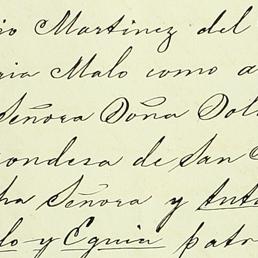 io Martinez del
ria Malo como a
Señora Doña Dol
ondesa de San
ha Señora y Anto
lo-y Eguia patr